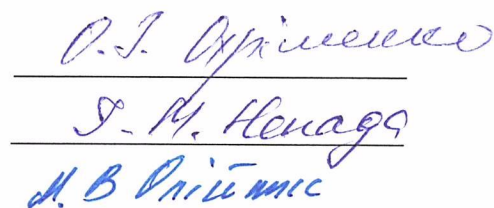 О.І. Охріменко
Я.М. Ненада
М.В Олійник